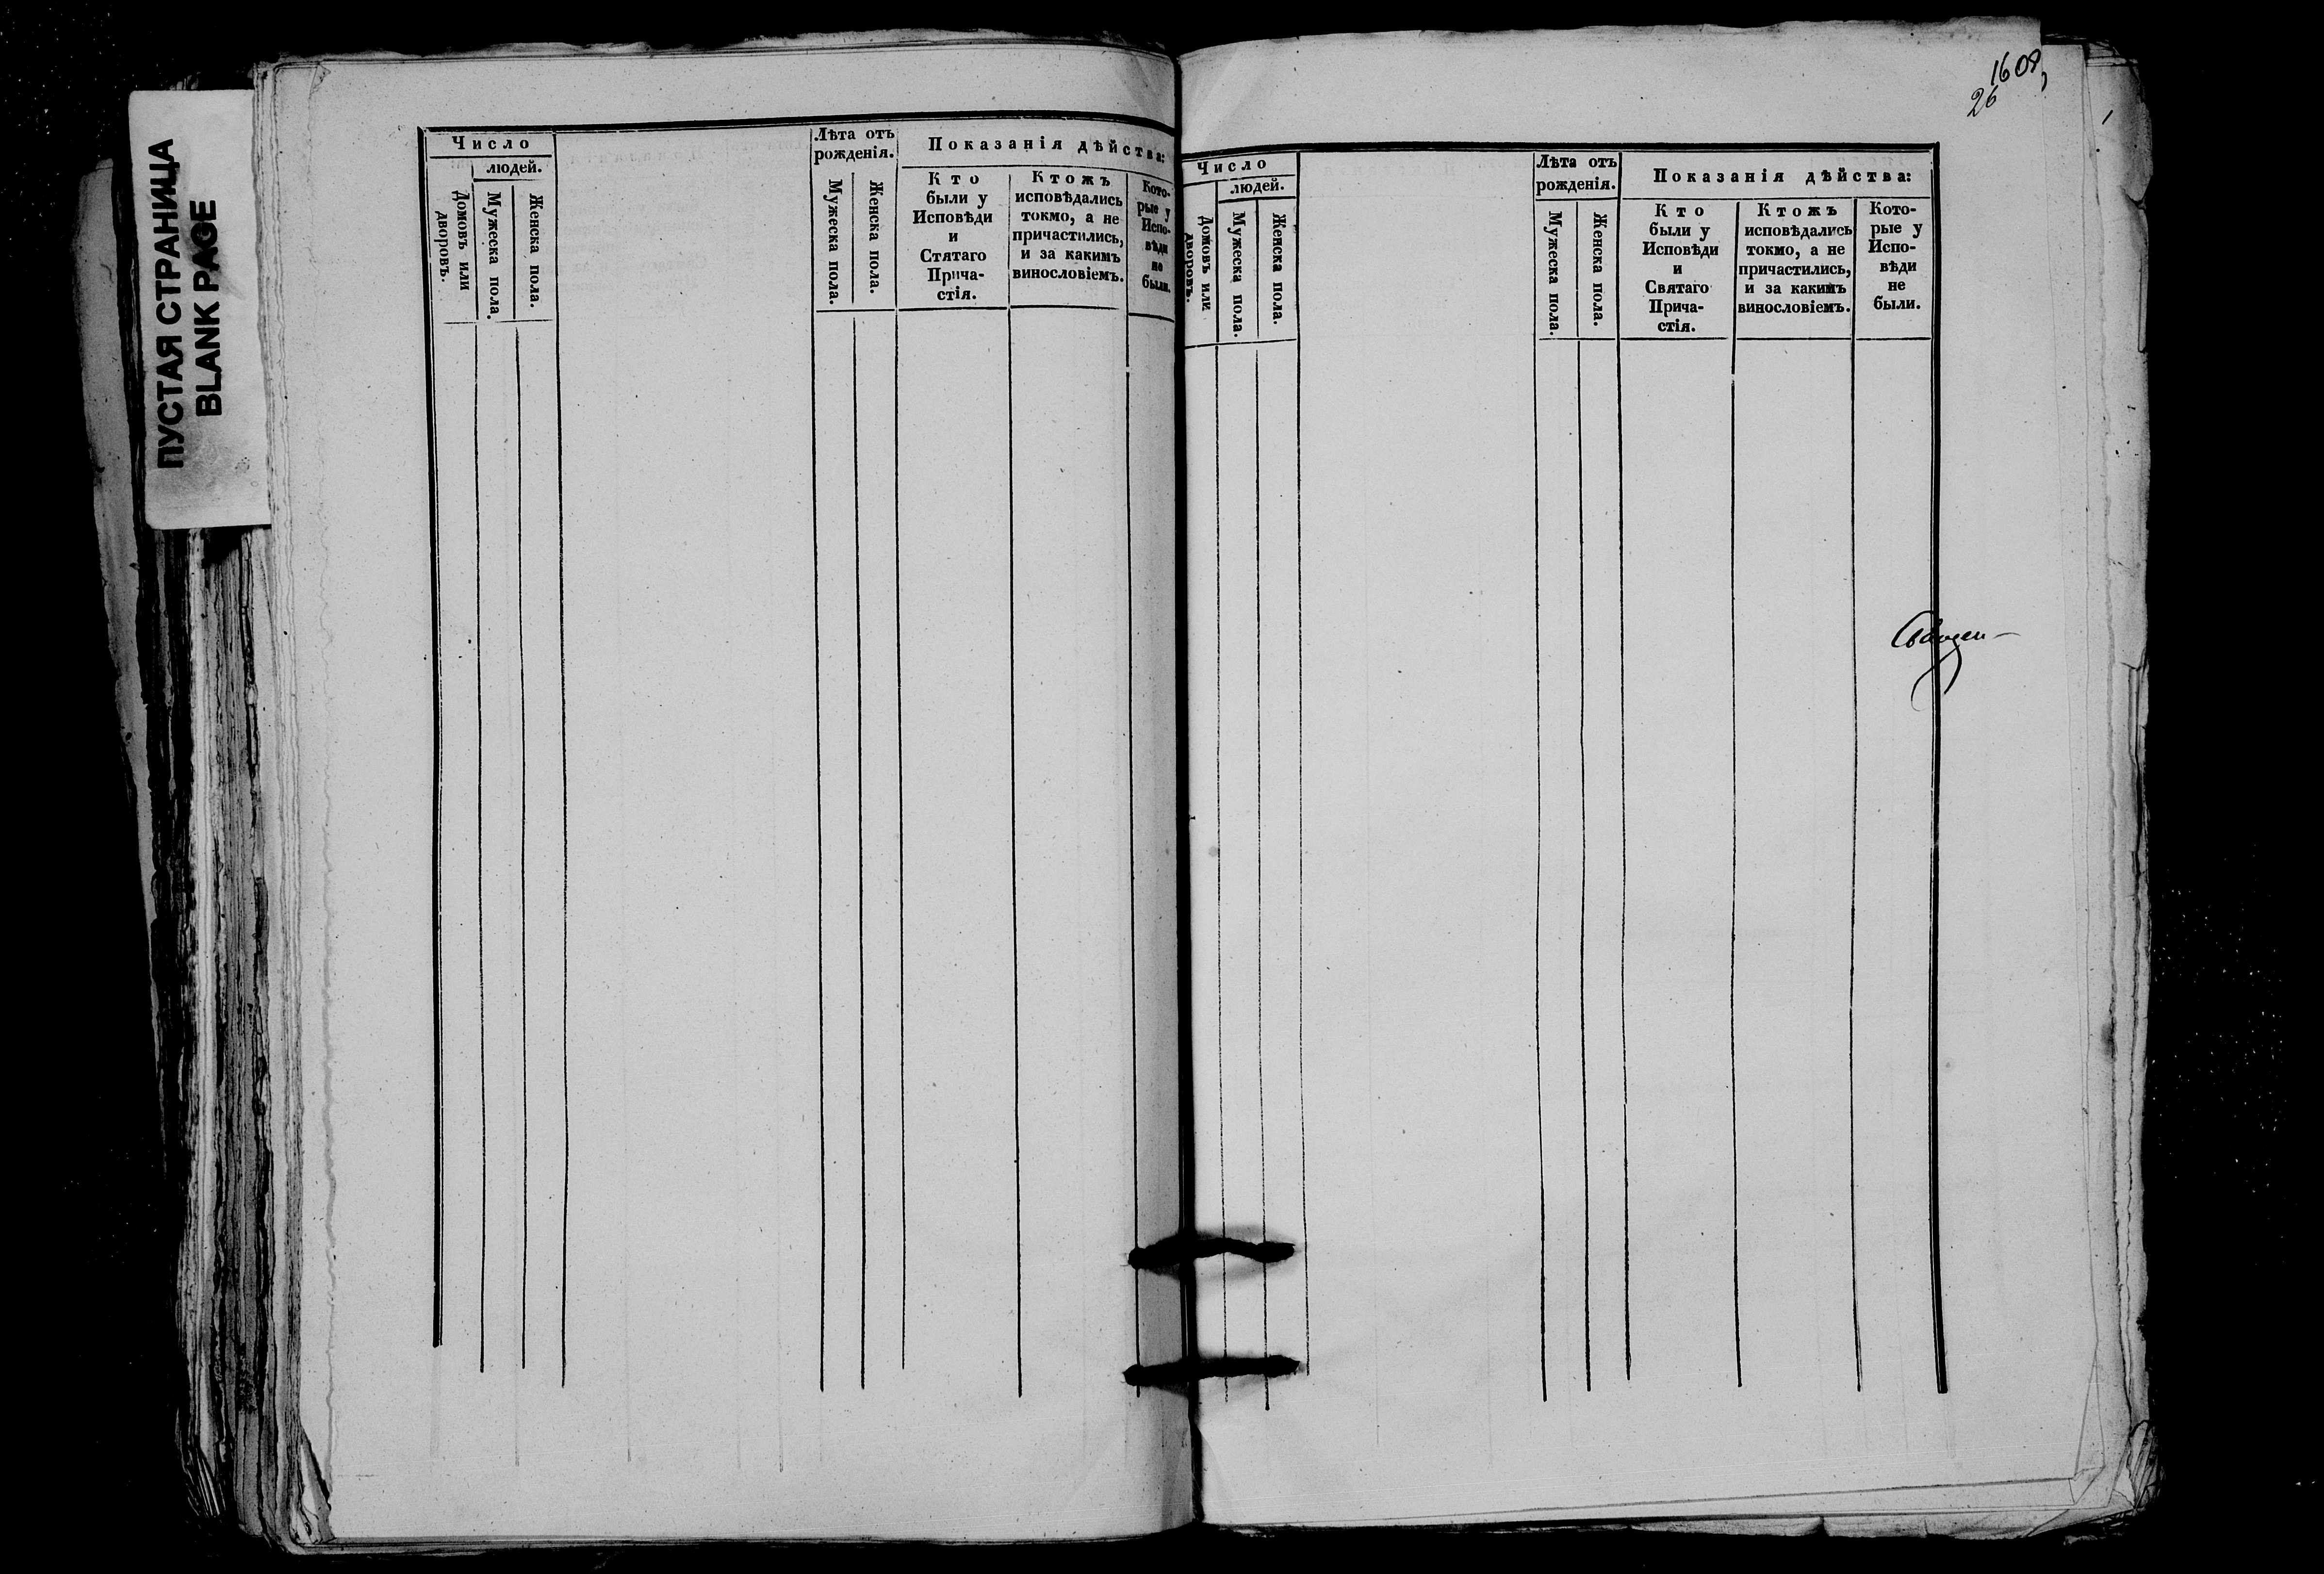 ПУСТАЯ СТРАНИЦА
BLANK PAGE
Число
людей.
Домовъ или
дворовъ.
Мужеска пола.
Женска пола.
Лѣта отъ
рожденія.
Мужеска пола.
Женска пола.
Показанія дѣйства:
Кто
были у
Исповѣди
и
Стятаго
Прича-
стія.
Ктожъ
исповѣдались
токмо, а не
причастились,
и за какимъ
винословіемъ.
Кото-
рые у
Испо-
вѣди
не
были.
26
Число
людей.
Домовъ или
дворовъ.
Мужеска пола.
Женска пола.
Лѣта отъ
рожденія.
Мужеска пола.
Женска пола.
Показанія дѣйства:
Кто
были у
Исповѣди
и
Святаго
Прича-
стія.
Ктожъ
исповѣдались
токмо, а не
причастились,
и за какимъ
винословіемъ.
Кото-
рые у
Испо-
вѣди
не
были.